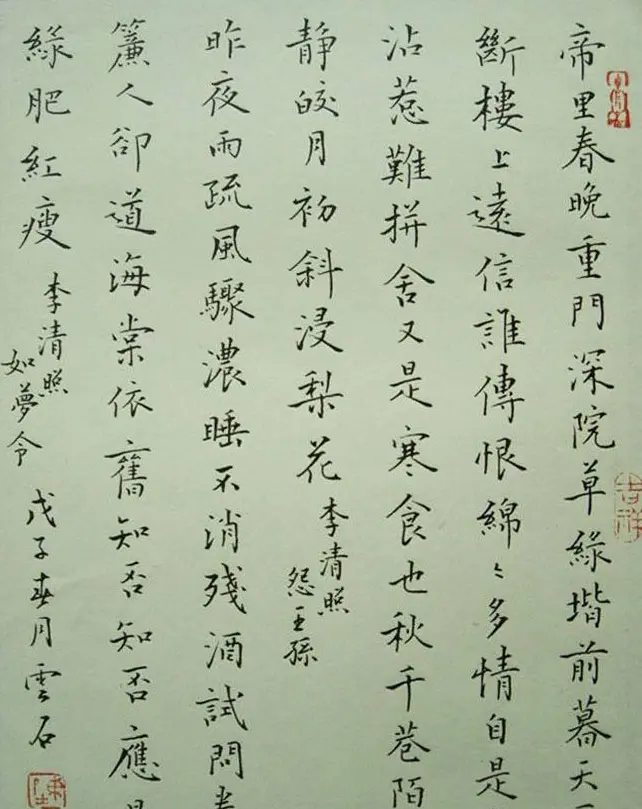 帝里春晚重門深院草綠堦前暮天
斷樓上遠信誰傳恨綿〻多情自是
沾惹難拼舍又是寒食也秋千巷陌
静皎月初斜浸梨花
李清照
怨王孫
昨夜雨疏風驟濃睡不消殘酒試問
簾人卻道海棠依舊知否知否應
綠肥紅瘦
李清照
如夢令
戊子春月雲石
吉祥